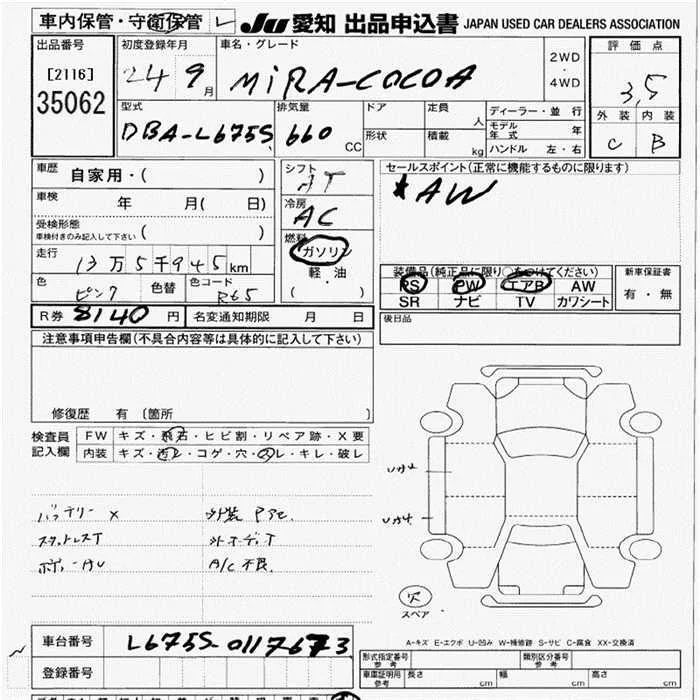 車内保管・守衛保管 レ JU 愛知 出品申込書 JAPAN USED CAR DEALERS ASSOCIATION
出品番号 初度登録年月 車名・グレード 2WD ・ 4WD 評価点
[2116] 24 9月 MiRA-COCOA 3,5
35062 型式 排気量 ドア 定員 人 ディーラー・並行 外装 内装
DBA-L675S 660 CC 形状 積載 kg モデル年式 年 C B
ハンドル 左・右
車歴 自家用・( ) シフト AT セールスポイント(正常に機能するものに限ります)
車検 年 月( 日) 冷房 AC ★AW
受検形態 燃料
車検付きのみ記入して下さい ( ) ガソリン
走行 13万5千945km 軽油 装備品(純正品に限り○をつけてください) 新車保証書
色 ピンク 色替 色コード R65 ( ) PS PW エアB AW 有・無
SR ナビ TV カワシート
R券 8140円 名変通知期限 月 日 後日品
注意事項申告欄(不具合内容等は具体的に記入して下さい)
修復歴 有 [箇所 ]
検査員 FW キズ・飛石・ヒビ割・リペア跡・X要
記入欄 内装 キズ・汚レ・コゲ・穴・スレ・キレ・破レ
バッテリー x
A/C 不良
スペア
A-キズ E-エクボ U-凹み W-補修跡 S-サビ C-腐食 XX-交換済
車台番号 L675S-0117673
形式指定番号 参考 類別区分番号 参考
登録番号 車庫証明用 参考 長さ cm 幅 cm 高さ cm